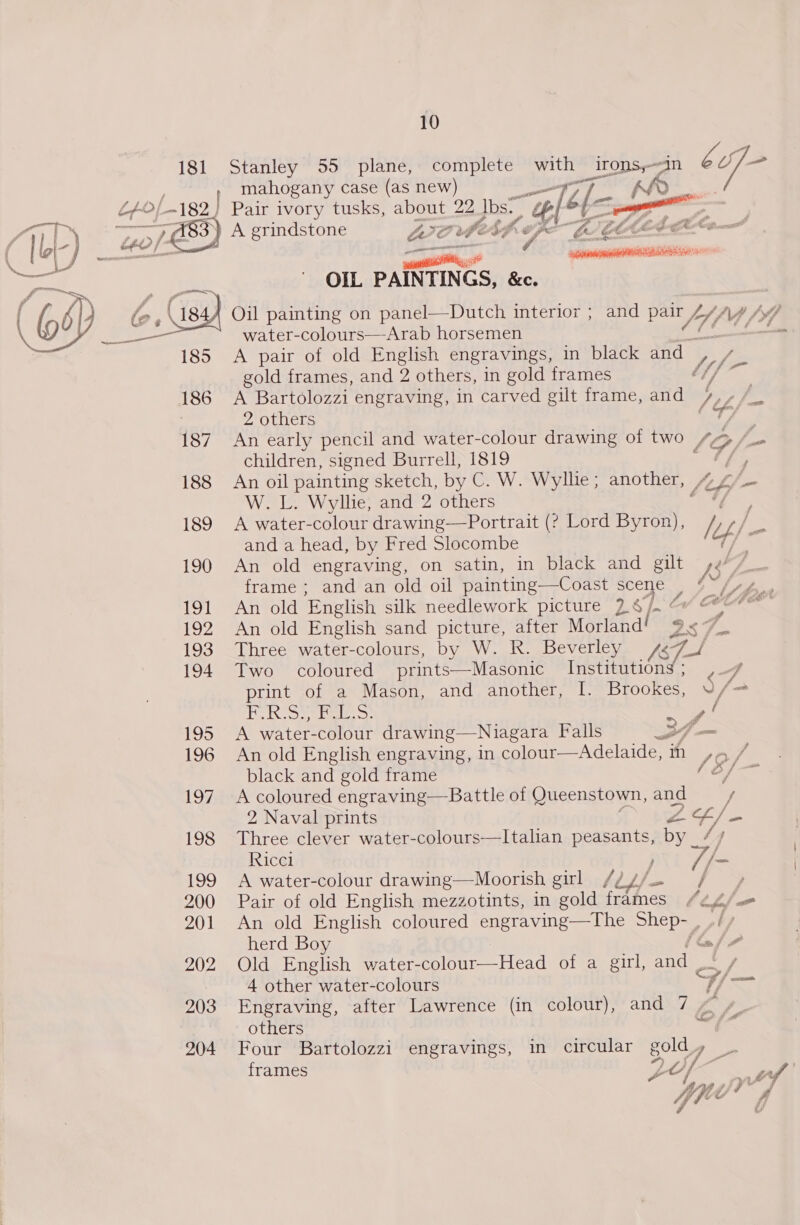 10
181 Stanley 55 plane, complete with irons, in
mahogany case (as new)
182 Pair ivory tusks, about 22 lbs.
183 A grindstone
OIL PAINTINGS, &c.
184 Oil painting on panel—Dutch interior ; and pair
water-colours—Arab horsemen
185 A pair of old English engravings, in black and
gold frames, and 2 others, in gold frames
186 A Bartolozzi engraving, in carved gilt frame, and
2 others
187 An early pencil and water-colour drawing of two
children, signed Burrell, 1819
188 An oil painting sketch, by C. W. Wyllie ; another,
W. L. Wyllie, and 2 others
189 A water-colour drawing—Portrait (? Lord Byron),
and a head, by Fred Slocombe
190 An old engraving, on satin, in black and gilt
frame ; and an old oil painting—Coast scene
191 An old English silk needlework picture
192 An old English sand picture, after Morland
193 Three water-colours, by W. R. Beverley
194 Two coloured prints—Masonic Institutions ;
print of a Mason, and another, I. Brookes,
F.R.S., F.L.S.
195 A water-colour drawing—Niagara Falls
196 An old English engraving, in colour—Adelaide, in
black and gold frame
197 A coloured engraving—Battle of Queenstown, and
2 Naval prints
198 Three clever water-colours—Italian peasants, by
Ricci
199 A water-colour drawing—Moorish girl
200 Pair of old English mezzotints, in gold frames
201 An old English coloured engraving—The Shep-
herd Boy
202 Old English water-colour—Head of a girl, and
4 other water-colours
203 Engraving, after Lawrence (in colour), and 7
others
204 Four Bartolozzi engravings, in circular gold
frames